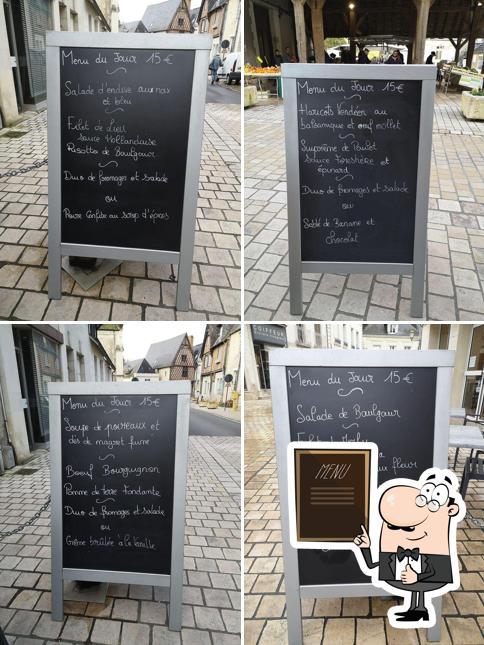 Menu du Jour 15€
Salade d'endive aux noix
et bleu
Filet de Lieu
sauce Hollandaise
Risotto de Boulgour
Duo de fromages et salade
ou
Poire Confite au sirop d'épices
Menu du Jour 15€
Haricots Vendéen au
balsamique et oeuf mollet
Suprême de Poulet
sauce Forestière et
épinard
Duo de fromages et salade
ou
Sablé de Banane et
chocolat
Menu du Jour 15€
Soupe de poireaux et
dés de magret fumé
Boeuf Bourguignon
Pomme de terre Fondante
Duo de fromages et salade
ou
Crème brûlée à la Vanille
COIFFEUR
Menu du Jour 15€
Salade de Boulgour
Filet de
fleur
MENU